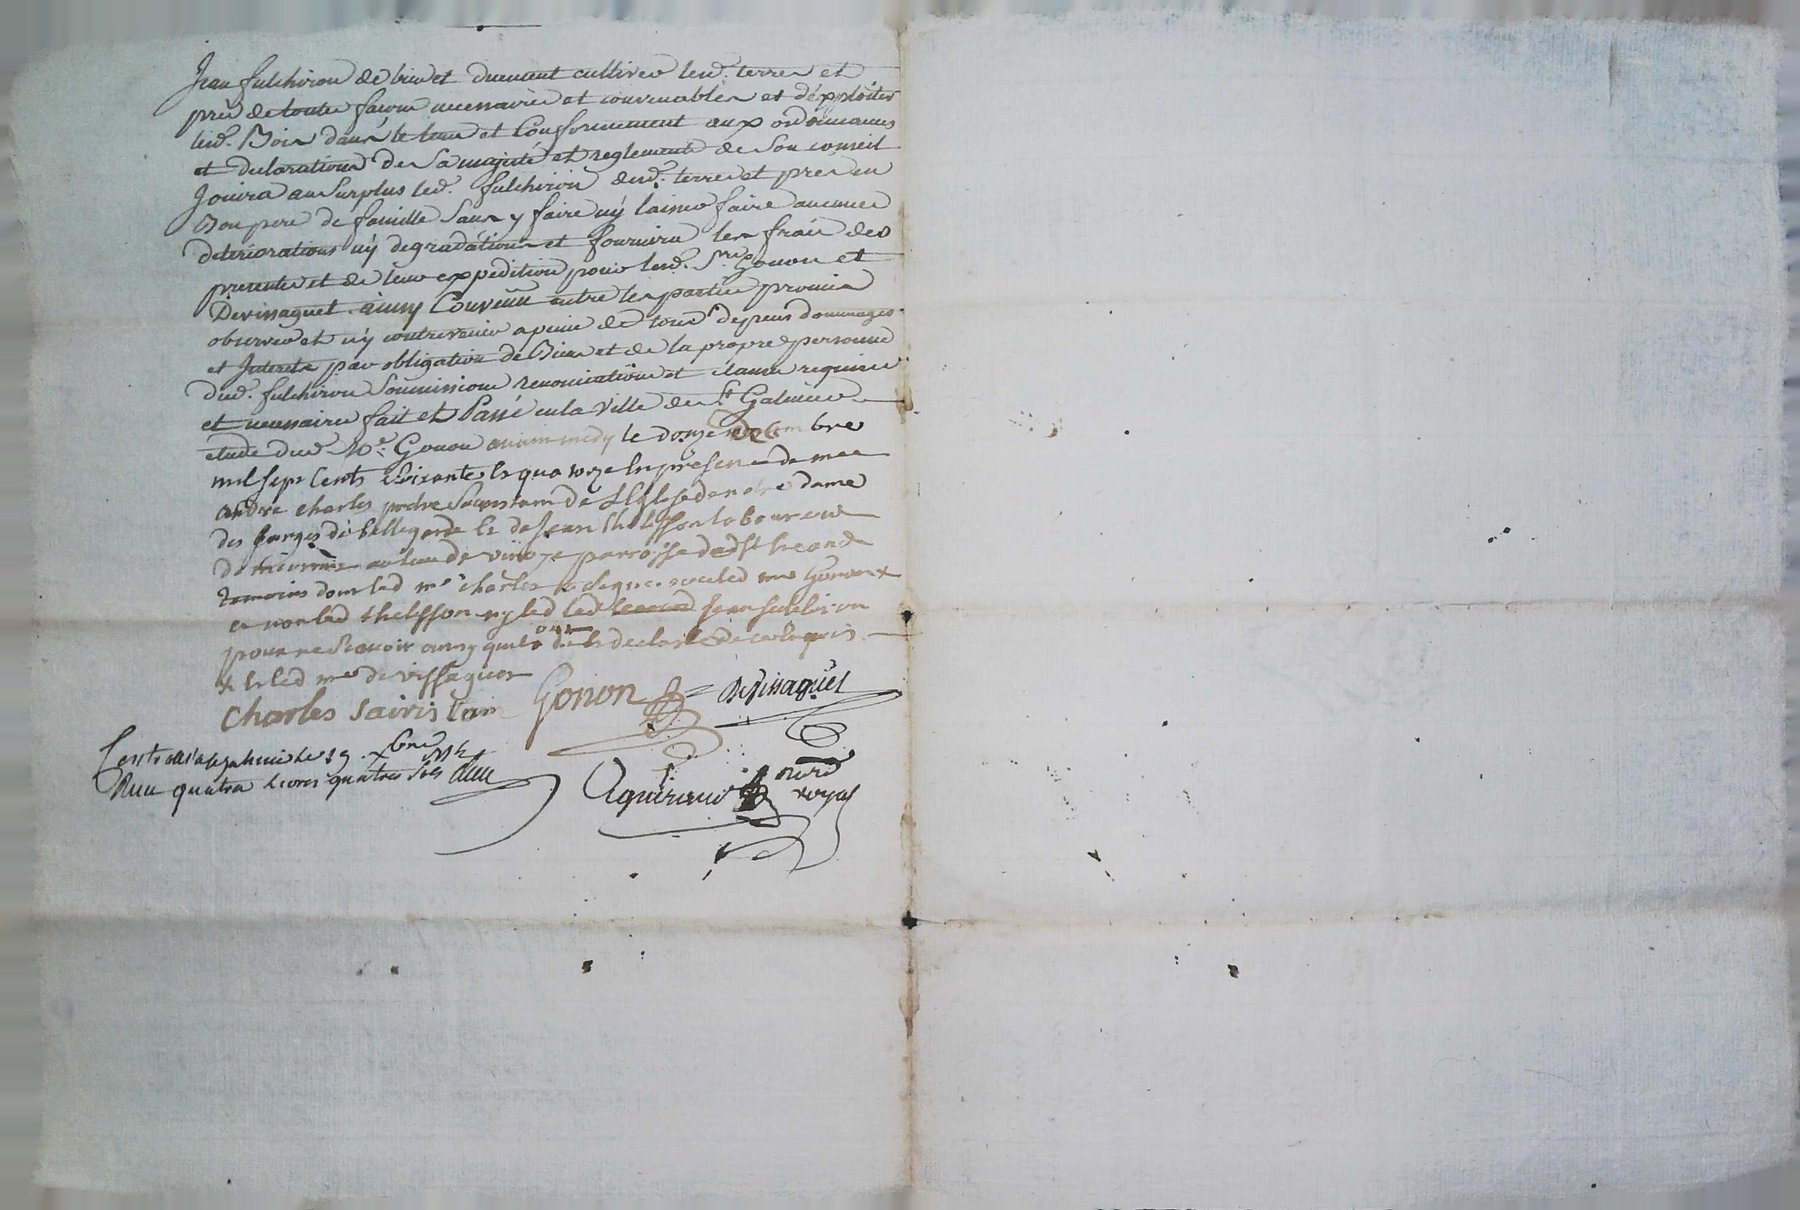 Jean fulchiron de bien et duement cultiver lesd. terres et
prés de toutes facons necessaires et convenables et d'exploiter
lesd. Bois dans le tems et Conformement aux ordonnances
et declarations de Sa majesté et reglements de Son conseil
Jouira au Surplus led. fulchiron desd. terres et prés en
Bon pere de famille Sans y faire ny laisser faire aucunes
deteriorations ny degradations et fournira les frais des
presentes et de leur expedition pour lesd. Srs. Gonon et
Devissaguet ainsy Convenu entre les parties promis
observer et n'y contrevenir a peine de tous depens dommages
et Interets par obligation de Biens et de la propre personne
dud. fulchiron Soumissions renonciations et clauses requises
et necessaires fait et Passé en la Ville de St. Galmier
etude dud. Me. Gonon avant medy le douze decembre
mil sept Cents Soixante et quatorze en presence de mre
andré charles pretre Sacristain de L'Eglise de notre dame
des forges de bellegarde et de Jean thelisson laboureur
au lieu de parroisse dud St
temoins dont led mre charles a signé avec led mre Gonon x
et non led thelisson ny led Jean fulchiron
pour ne Scavoir ainsy quils ont dit et declaré de ce enquis
x et led mre de vissaguet
Charles Sacristain Gonon Devissaguet
Controllé a st galmier le 19 xbre 1774
Reçu quatre livres quatre sols
nore
royal